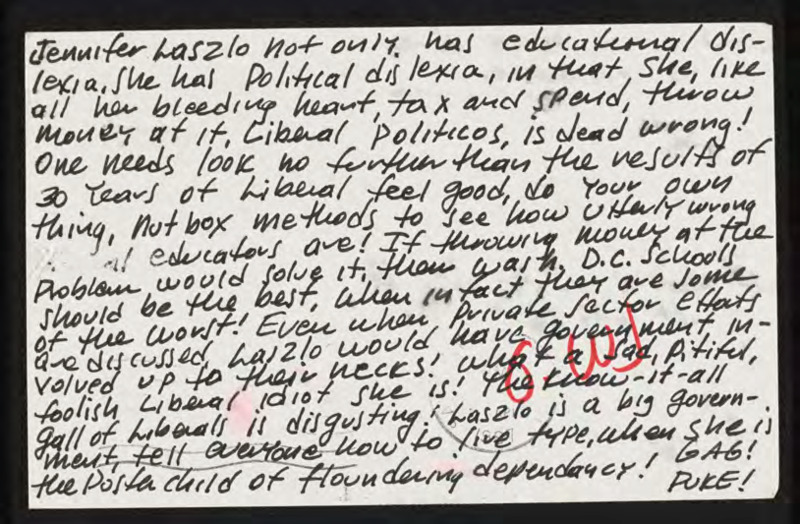 Jennifer Laszlo not only has educational dis-
lexia, she has Political dislexia, in that she, like
all her bleeding heart, tax and spend, throw
money at it, Liberal Politicos, is dead wrong!
One needs look no further than the results of
30 Years of Liberal feel good, do Your own
thing, Nutbox methods to see how utterly wrong
educators are! If throwing money at the
Problem would solve it, then Wash, D.C. Schools
should be the best, when in fact they are some
of the worst! Even when Private Sector Efforts
are discussed, Laszlo would have government, in-
volved up to their necks! What a Sad, Pitiful,
foolish Liberal idiot she is! The Know-it-all
gall of Liberals is disgusting! Laszlo is a big govern-
ment, tell everyone how to live type, when she is
the Poster child of floundering dependancy! GAG!
PUKE!